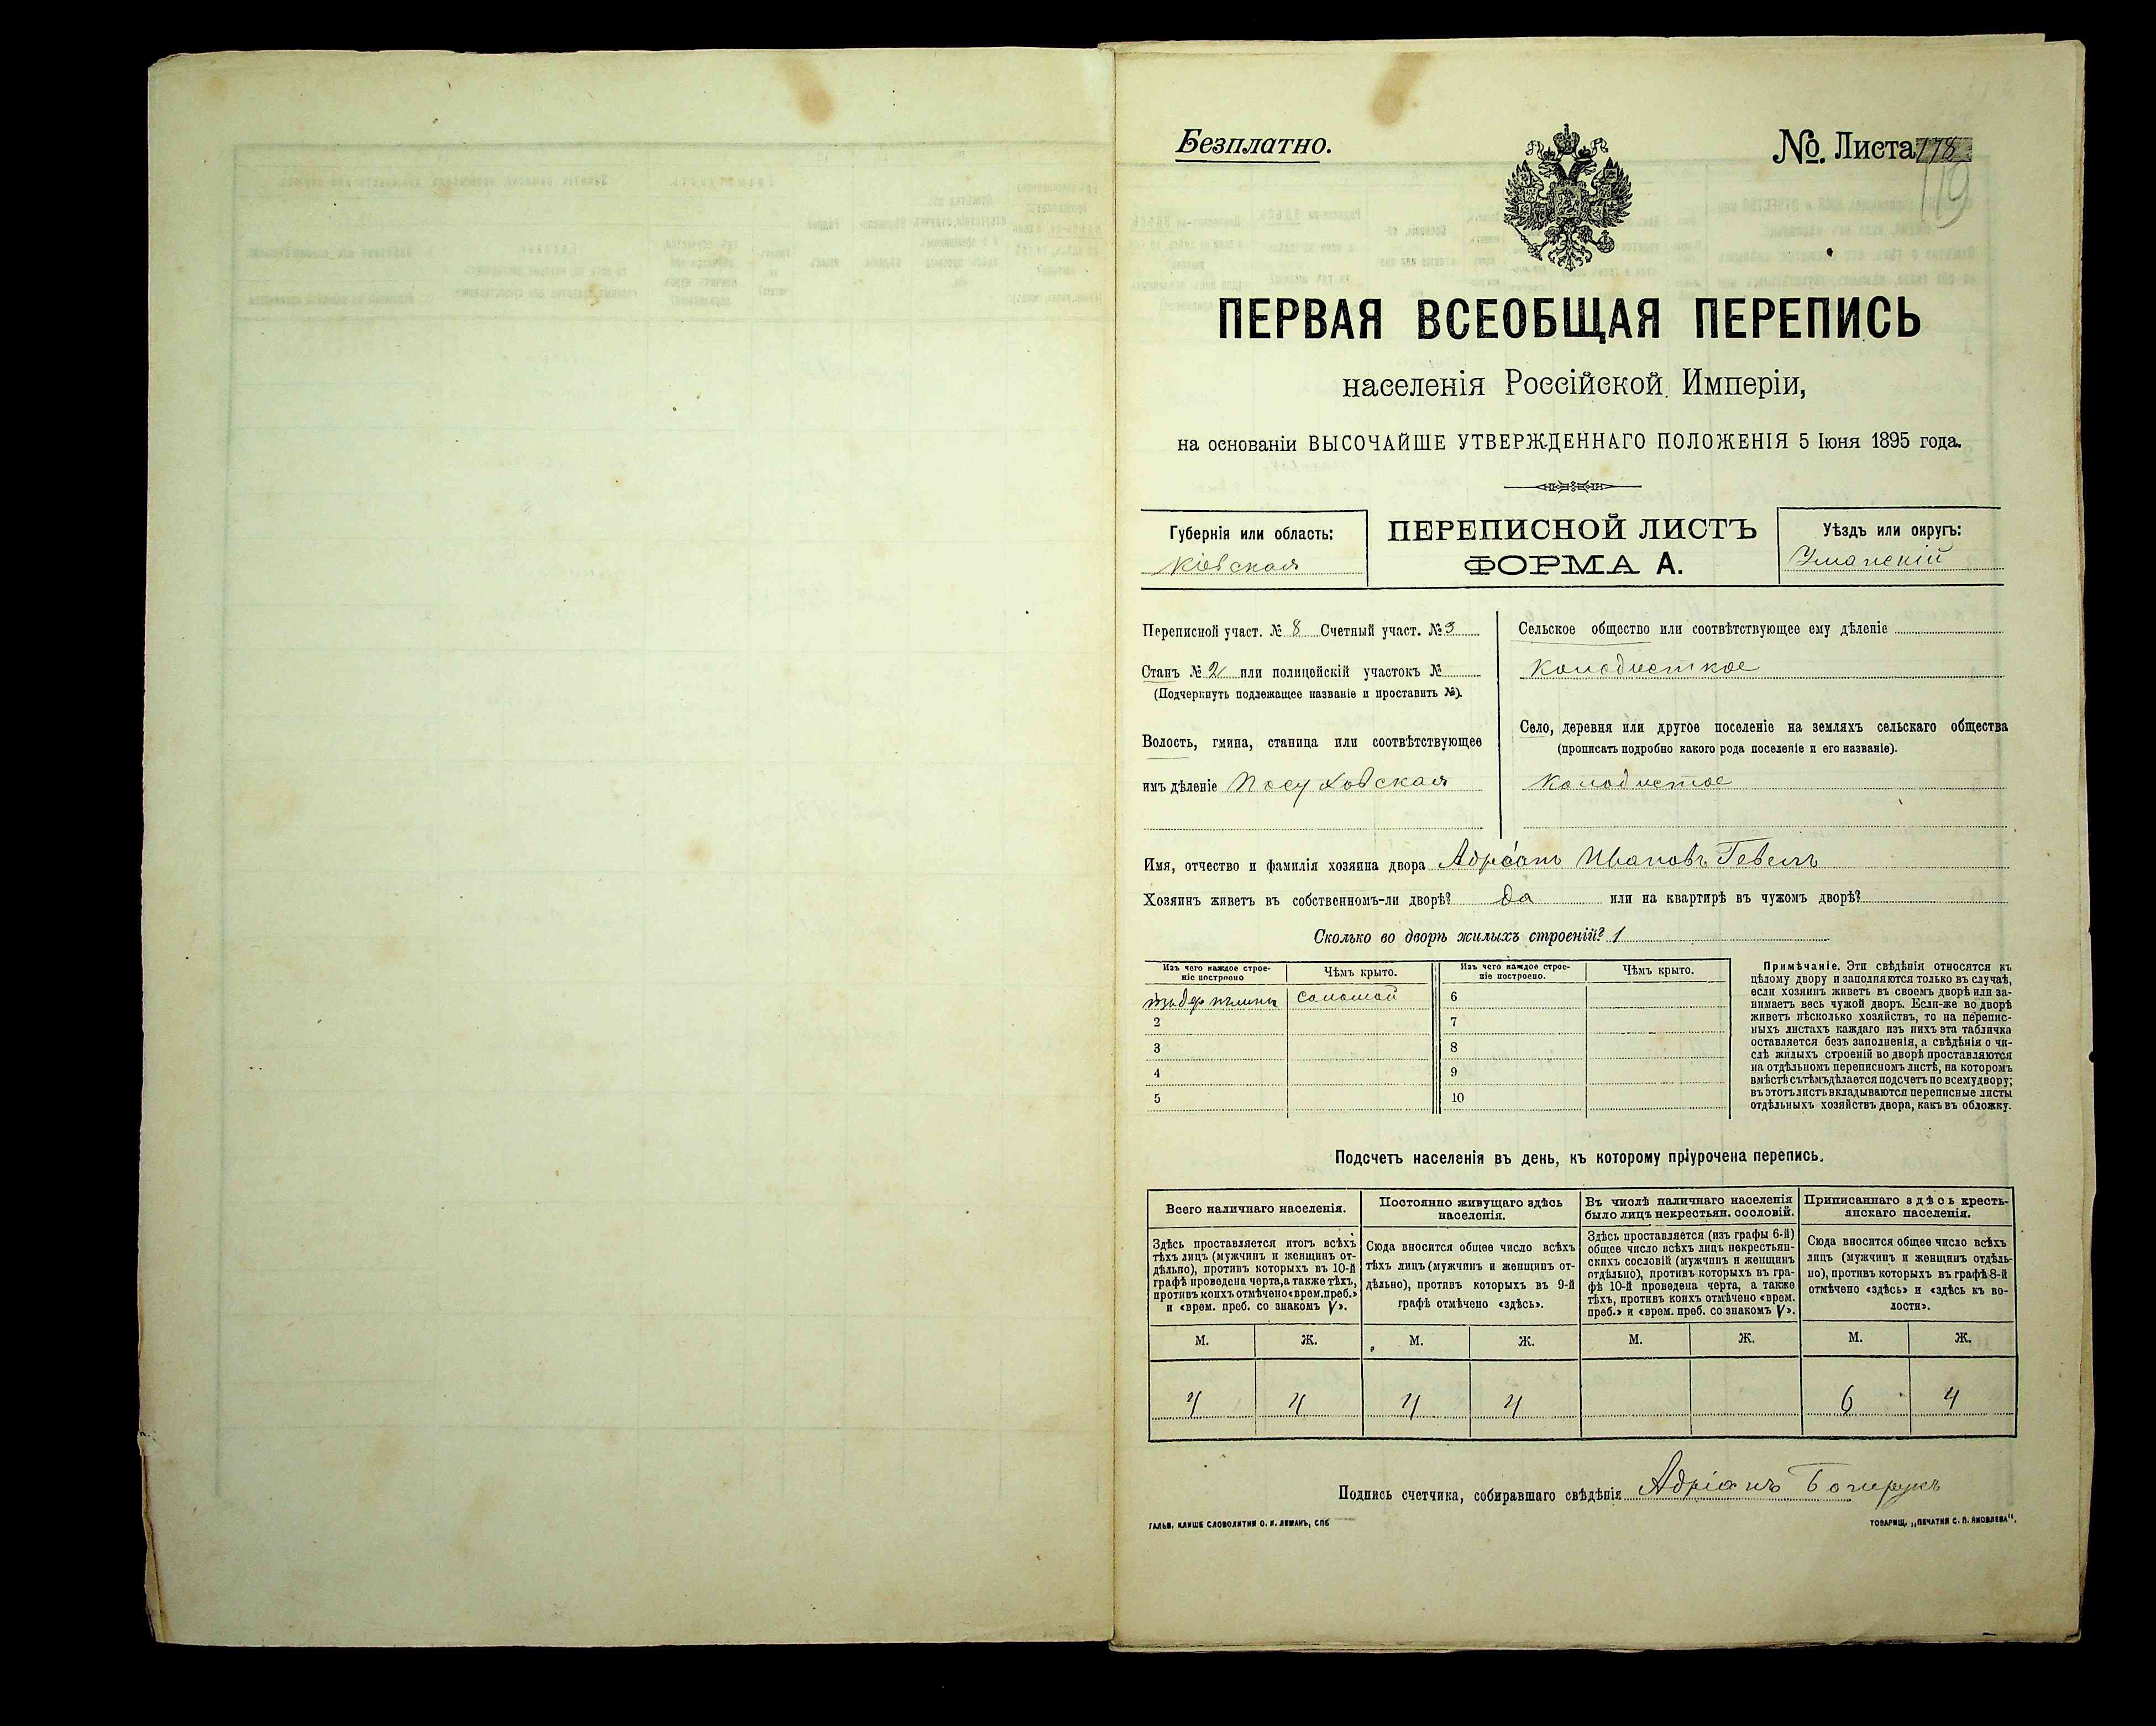 Безплатно.
№. Листа 118
119
ПЕРВАЯ ВСЕОБЩАЯ ПЕРЕПИСЬ
населенія Россійской Имперіи,
на основаніи ВЫСОЧАЙШЕ УТВЕРЖДЕННАГО ПОЛОЖЕНІЯ 5 Іюня 1895 года.
Губернія или область:
Кіевская
ПЕРЕПИСНОЙ ЛИСТЪ
ФОРМА А.
Уѣздъ или округъ:
Уманскій
Переписной участ. № 8 Счетный участ. № 3
Станъ № 2 или полицейскій участокъ №
(Подчеркнуть подлежащее названіе и проставить №).
Волость, гмина, станица или соотвѣтствующее
имъ дѣленіе Посуховская
Сельское общество или соотвѣтствующее ему дѣленіе
Колодисткое
Село, деревня или другое поселеніе на земляхъ сельскаго общества
(прописать подробно какого рода поселеніе и его названіе).
Колодистое
Имя, отчество и фамилія хозяина двора Адріанъ Ивановъ
Хозяинъ живетъ въ собственномъ-ли дворѣ? да или на квартирѣ въ чужомъ дворѣ?
Сколько во дворѣ жилыхъ строеній? 1
Изъ чего каждое строе-
ніе построено
Чѣмъ крыто.
Изъ чего каждое строе-
ніе построено.
Чѣмъ крыто.
соломой 6
2 7
3 8
4 9
5 10
Примѣчаніе. Эти свѣдѣнія относятся къ
цѣлому двору и заполняются только въ случаѣ,
если хозяинъ живетъ въ своемъ дворѣ или за-
нимаетъ весь чужой дворъ. Если-же во дворѣ
живетъ нѣсколько хозяйствъ, то на перепис-
ныхъ листахъ каждаго изъ нихъ эта табличка
оставляется безъ заполненія, а свѣдѣнія о чи-
слѣ жилыхъ строеній во дворѣ проставляются
на отдѣльномъ переписномъ листѣ, на которомъ
вмѣстѣ съ тѣмъ дѣлается подсчетъ по всему двору;
въ этотъ листъ вкладываются переписные листы
отдѣльныхъ хозяйствъ двора, какъ въ обложку.
Подсчетъ населенія въ день, къ которому пріурочена перепись.
Всего наличнаго населенія.
Здѣсь проставляется итогъ всѣхъ
тѣхъ лицъ (мужчинъ и женщинъ от-
дѣльно), противъ которыхъ въ 10-й
графѣ проведена черта, а также тѣхъ,
противъ коихъ отмѣчено «врем. преб.»
и «врем. преб. со знакомъ V».
Постоянно живущаго здѣсь
населенія.
Сюда вносится общее число всѣхъ
тѣхъ лицъ (мужчинъ и женщинъ от-
дѣльно), противъ которыхъ въ 9-й
графѣ отмѣчено «здѣсь».
Въ числѣ наличнаго населенія
было лицъ некрестьян. сословій.
Здѣсь проставляется (изъ графы 6-й)
общее число всѣхъ лицъ некрестьян-
скихъ сословій (мужчинъ и женщинъ
отдѣльно), противъ которыхъ въ гра-
фѣ 10-й проведена черта, а также
тѣхъ, противъ коихъ отмѣчено «врем.
преб.» и «врем. преб. со знакомъ V».
Приписаннаго здѣсь кресть-
янскаго населенія.
Сюда вносится общее число всѣхъ
лицъ (мужчинъ и женщинъ отдѣль-
но), противъ которыхъ въ графѣ 8-й
отмѣчено «здѣсь» и «здѣсь къ во-
лости».
М. Ж. М. Ж. М. Ж. М. Ж.
4 4 4 4 6 4
Подпись счетчика, собиравшаго свѣдѣнія Адріанъ
ГАЛЬВ. КЛИШЕ СЛОВОЛИТНИ О. И. ЛЕМАНЪ, СПБ
ТОВАРИЩ. „ПЕЧАТНЯ С. П. ЯКОВЛЕВА".